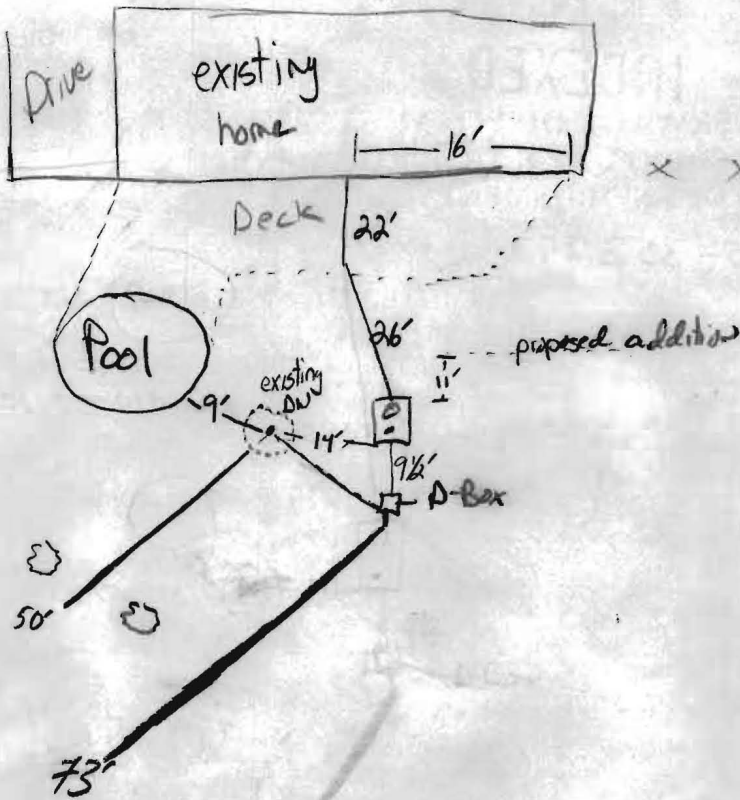 Drive
existing
home
16'
x x
Deck
22'
26'
proposed addition
11'
Pool
existing
DW
9'
14'
9½'
D-Box
50'
73'